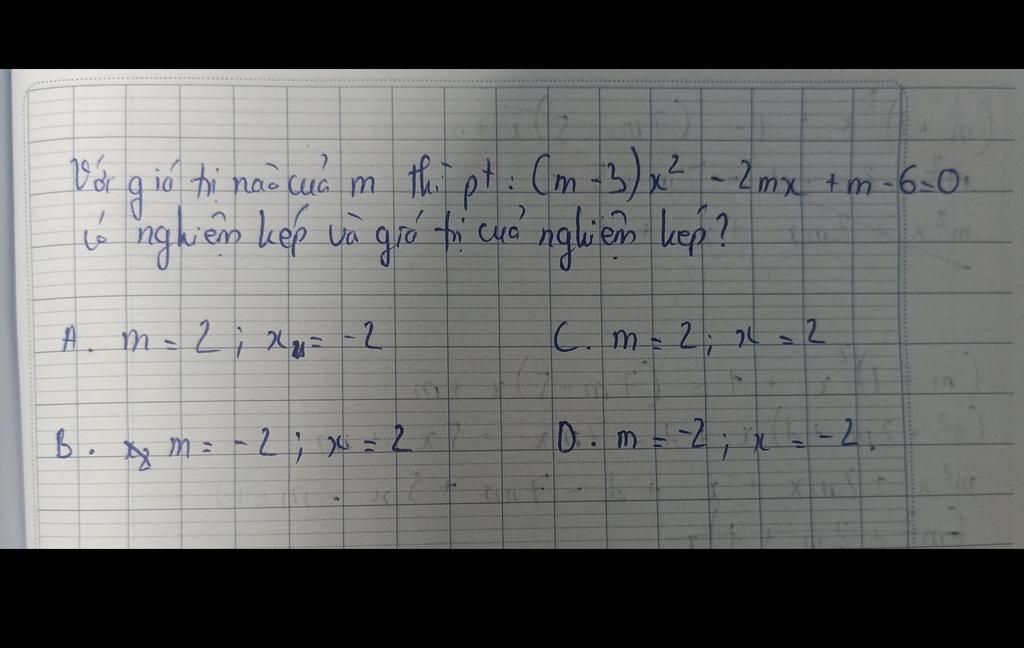 Với giá trị nào của m thì pt: (m-3)x² - 2mx + m - 6 = 0
có nghiệm kép và giá trị của nghiệm kép?
A. m = 2; x = -2
C. m = 2; x = 2
B. m = -2; x = 2
D. m = -2; x = -2.